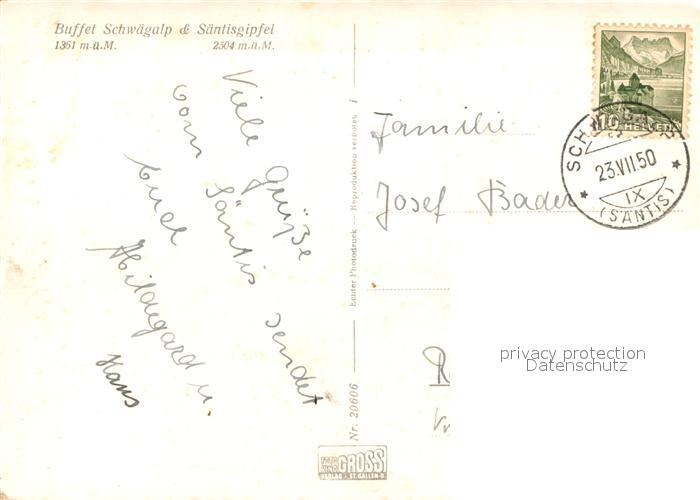 Buffet Schwägalp & Säntisgipfel
1361 m.ü.M. 2504 m.ü.M.
Viele Grüße
vom Säntis sendet
Euch
Hildegard u.
Hans
Nr. 20606
Echter Photodruck — Reproduktion verboten
GROSS
10 HELVETIA
SCHWÄGALP
23.VII.50
IX
(SÄNTIS)
Familie
Josef Bader
privacy protection
Datenschutz